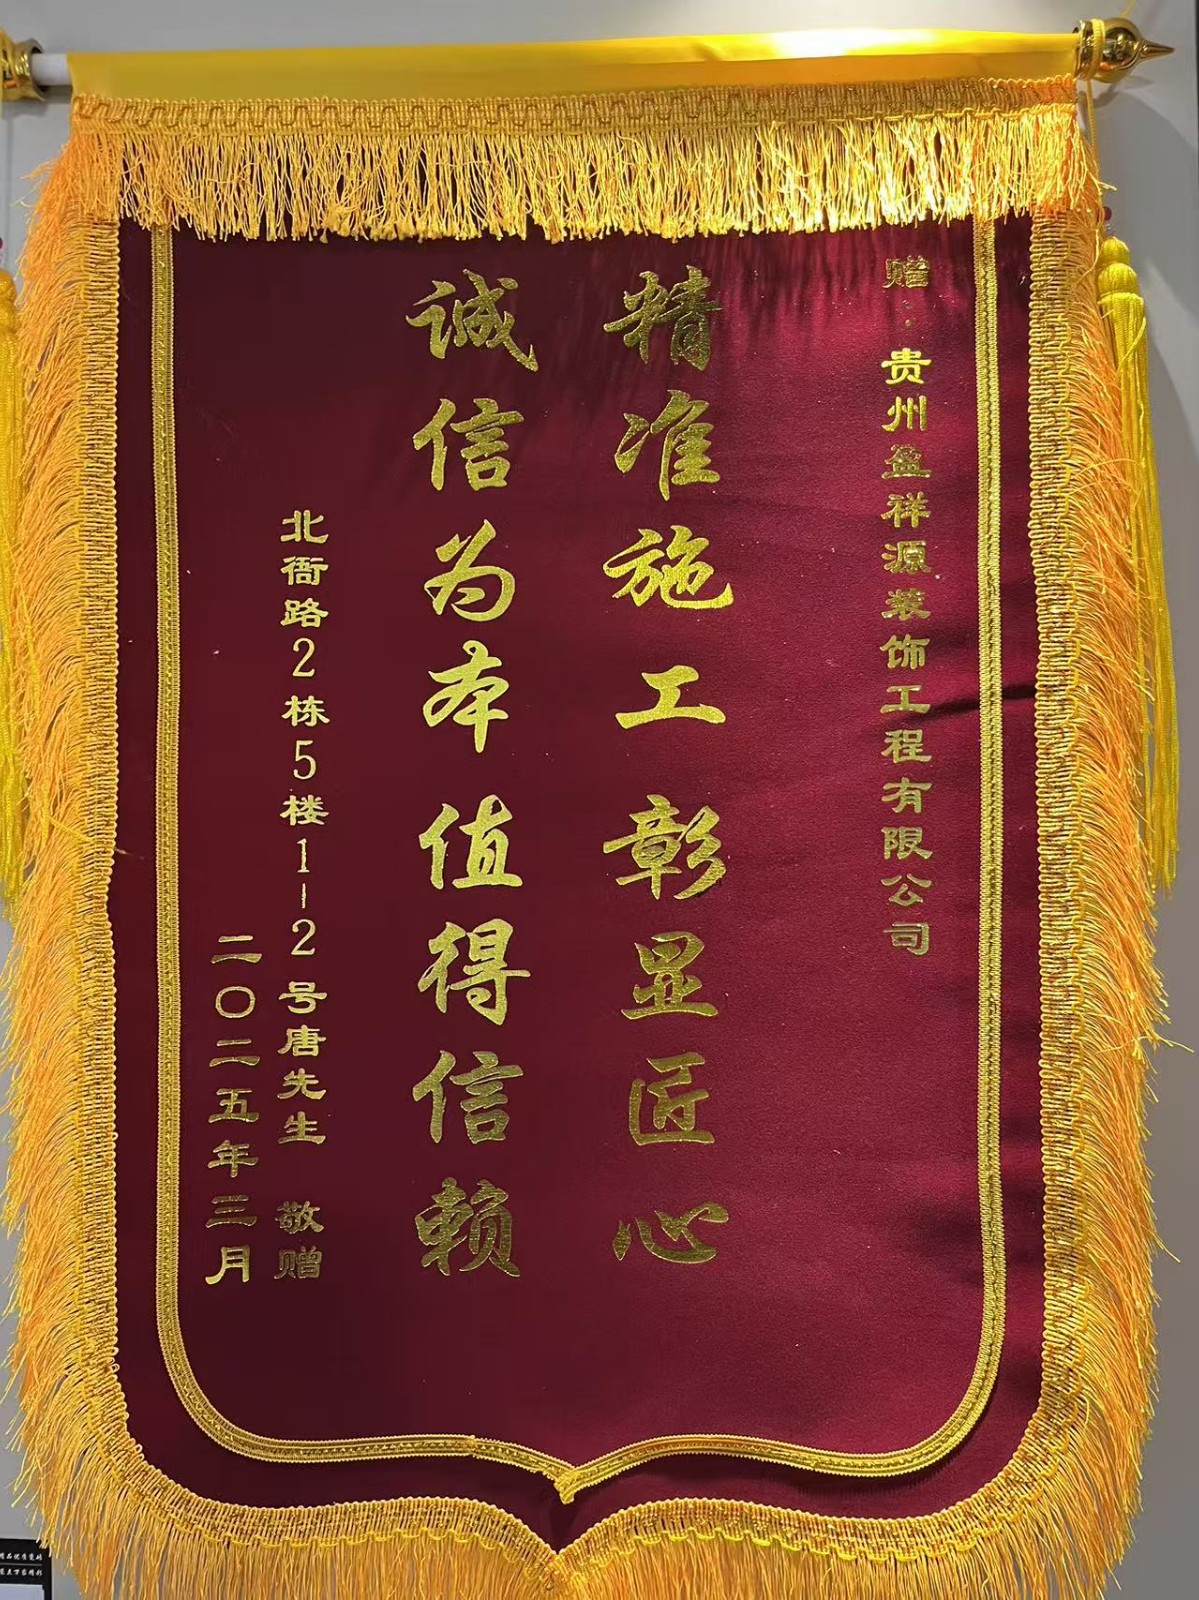 赠：贵州盈祥源装饰工程有限公司
精准施工彰显匠心
诚信为本值得信赖
北衙路2栋5楼1-2号唐先生 敬赠
二〇二五年三月